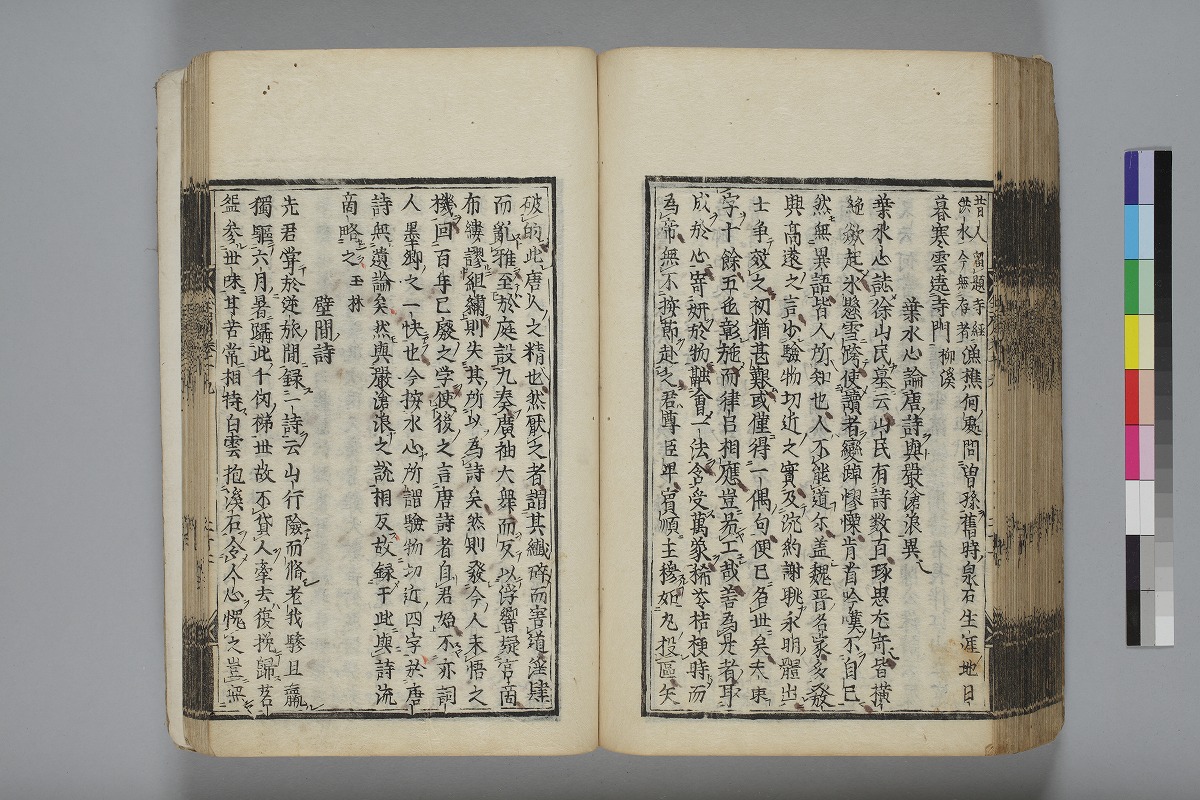 昔人留題寺經洪水今無存者漁樵何處問曾孫舊時泉石生涯地日
暮寒雲遶寺門柳溪
葉水心論唐詩與嚴滄浪異
葉水心誌徐山民墓云山民有詩数百琢思尤竒皆橫
絶歘起氷懸雪跨使讀者變踔憀慄肯首吟嘆不自已
然無異語皆人所知也人不能道尓盖魏晉名家多發
興髙遠之言少驗物切近之實及沈約謝朓永明體出
士争效之初猶甚艱或僅得一偶句便已名世矣夫束
字十餘五色彰施而律吕相應豈易工哉善為是者取
成於心寄妍於物融會一法含受萬象豨苓桔梗時而
為帝無不按節赴之君尊臣卑賔順主穆如丸投區矢
破的此唐人之精也然厭之者謂其纖碎而害道淫肆
而亂雅至於庭設九奏廣袖大舞而反以浮響疑宮商
布縷謬組繡則失其所以為詩矣然則發今人未悟之
機回百年已廢之學使後之言唐詩者自君始不亦詞
人墨卿之一快也今按水心所謂驗物切近四字於唐
詩無遺論矣然與嚴滄浪之說相反故録于此與詩流
商略之玉林
壁間詩
先君甞於逆旅間録一詩云山行險而脩老我驂且羸
獨驅六月暑躡此千仞梯世故不貸人牽去復挽歸茗
盌參世味甘苦常相持白雲抱溪石令人心愧之豈無